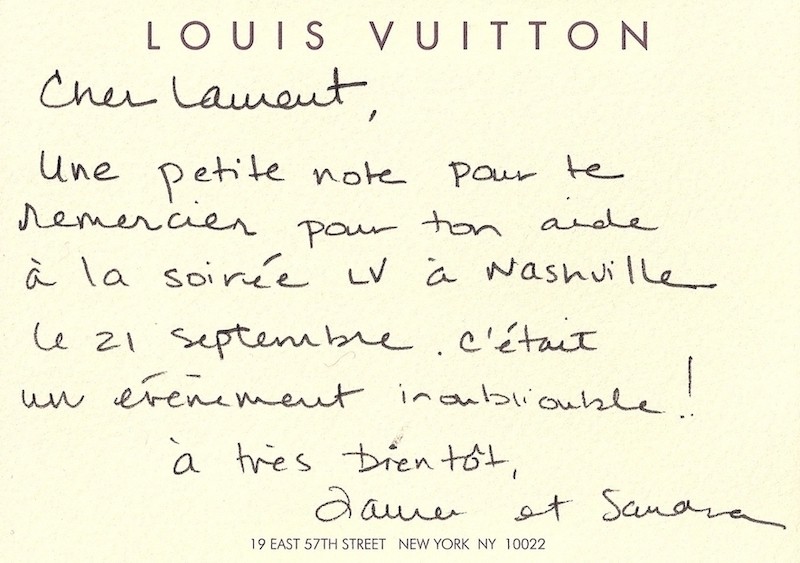 LOUIS VUITTON
Cher Laurent,
Une petite note pour te
remercier pour ton aide
à la soirée LV à Nashville
le 21 septembre. C'était
un événement inoubliable!
à très bientôt,
et Sandra
19 EAST 57TH STREET NEW YORK NY 10022